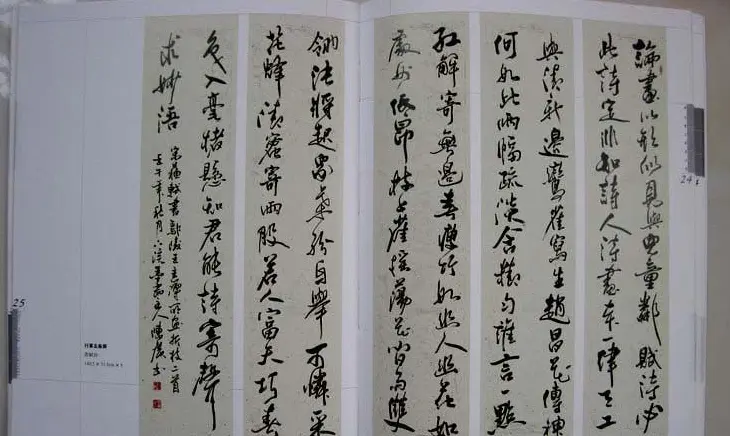 論畫以形似見與兒童鄰賦詩必
此詩定非知詩人詩畫本一律天工
與清新邊鸞雀寫生趙昌花傳神
何如此兩幅疏淡含精勻誰言一點
紅解寄無邊春瘦竹如幽人幽花如
處女低昂枝上雀搖蕩花間雨雙
翎決將起眾葉紛自舉可憐采
花蜂清蜜寄兩股若人富天巧春
色入毫楮懸知君能詩寄聲
求妙語
宋蘇軾書鄢陵王主簿所畫折枝二首
壬午年秋月
24
25